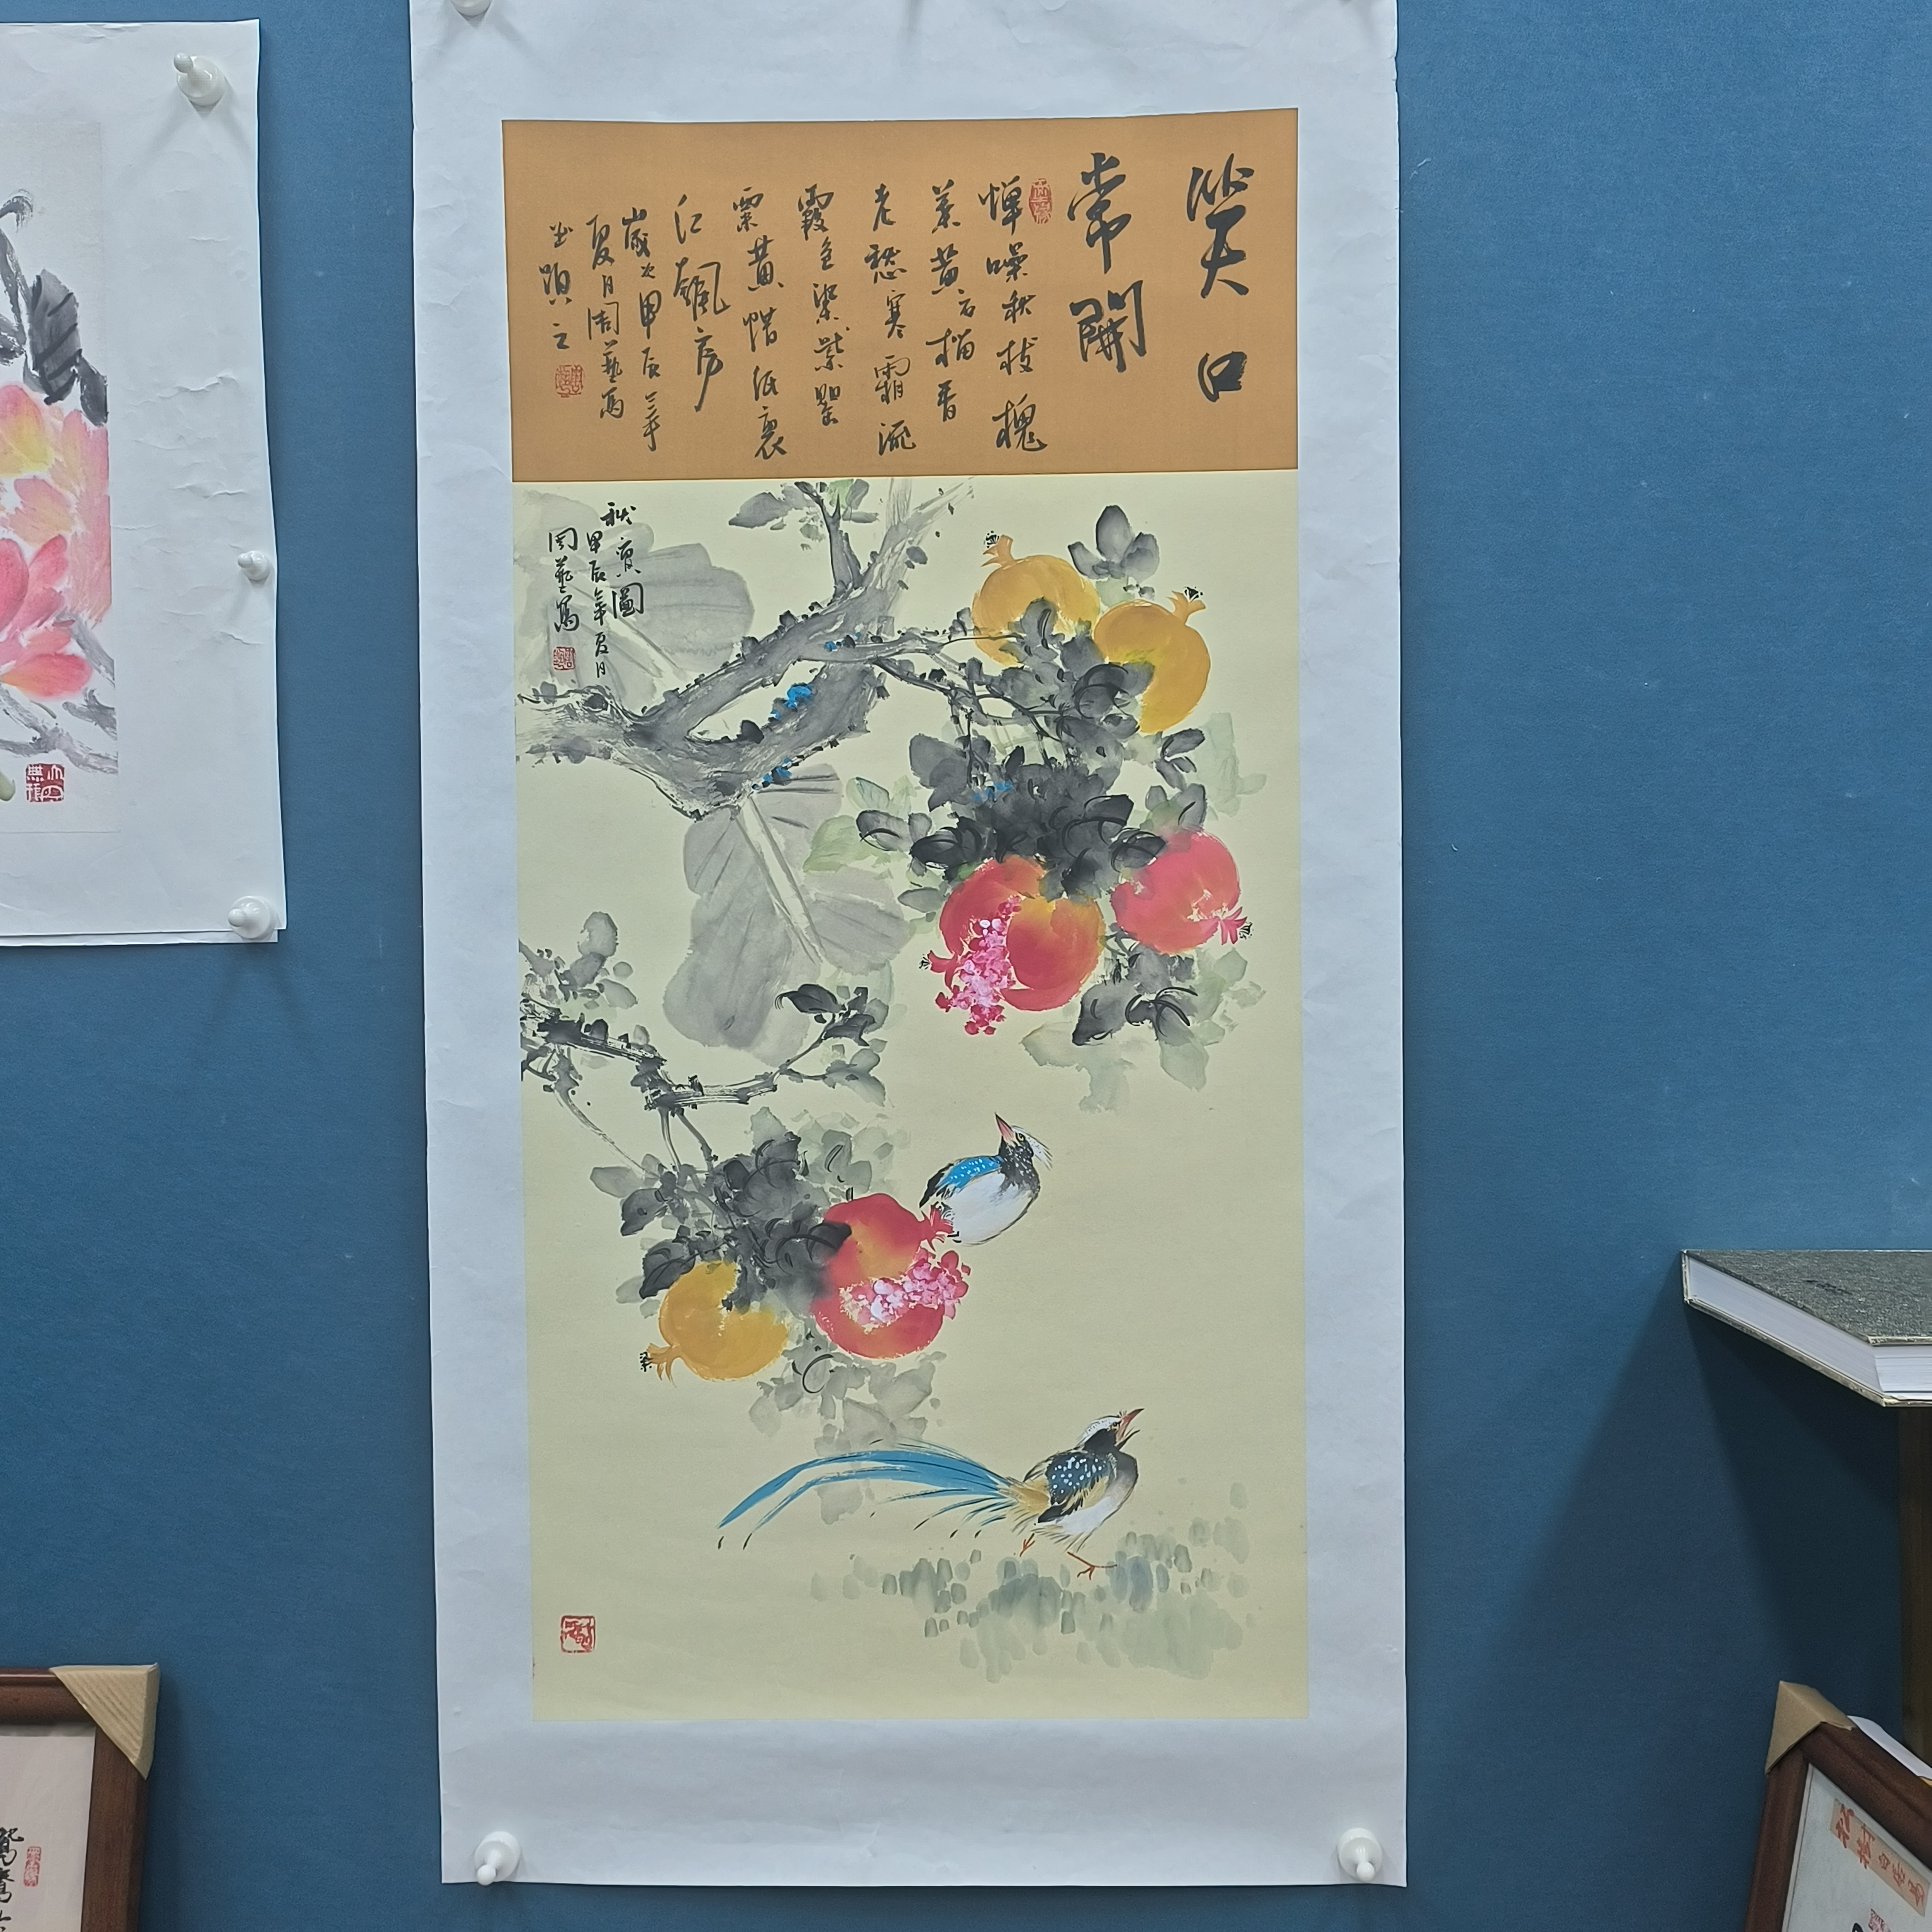 笑口
常開
蟬噪秋枝槐
葉黄石榴香
老愁寒霜流
霞色染紫罌
粟黄蜡纸裹
红瓠房
歲次甲辰年
夏月周藝寫
並題之
秋實圖
甲辰年夏月
周藝寫